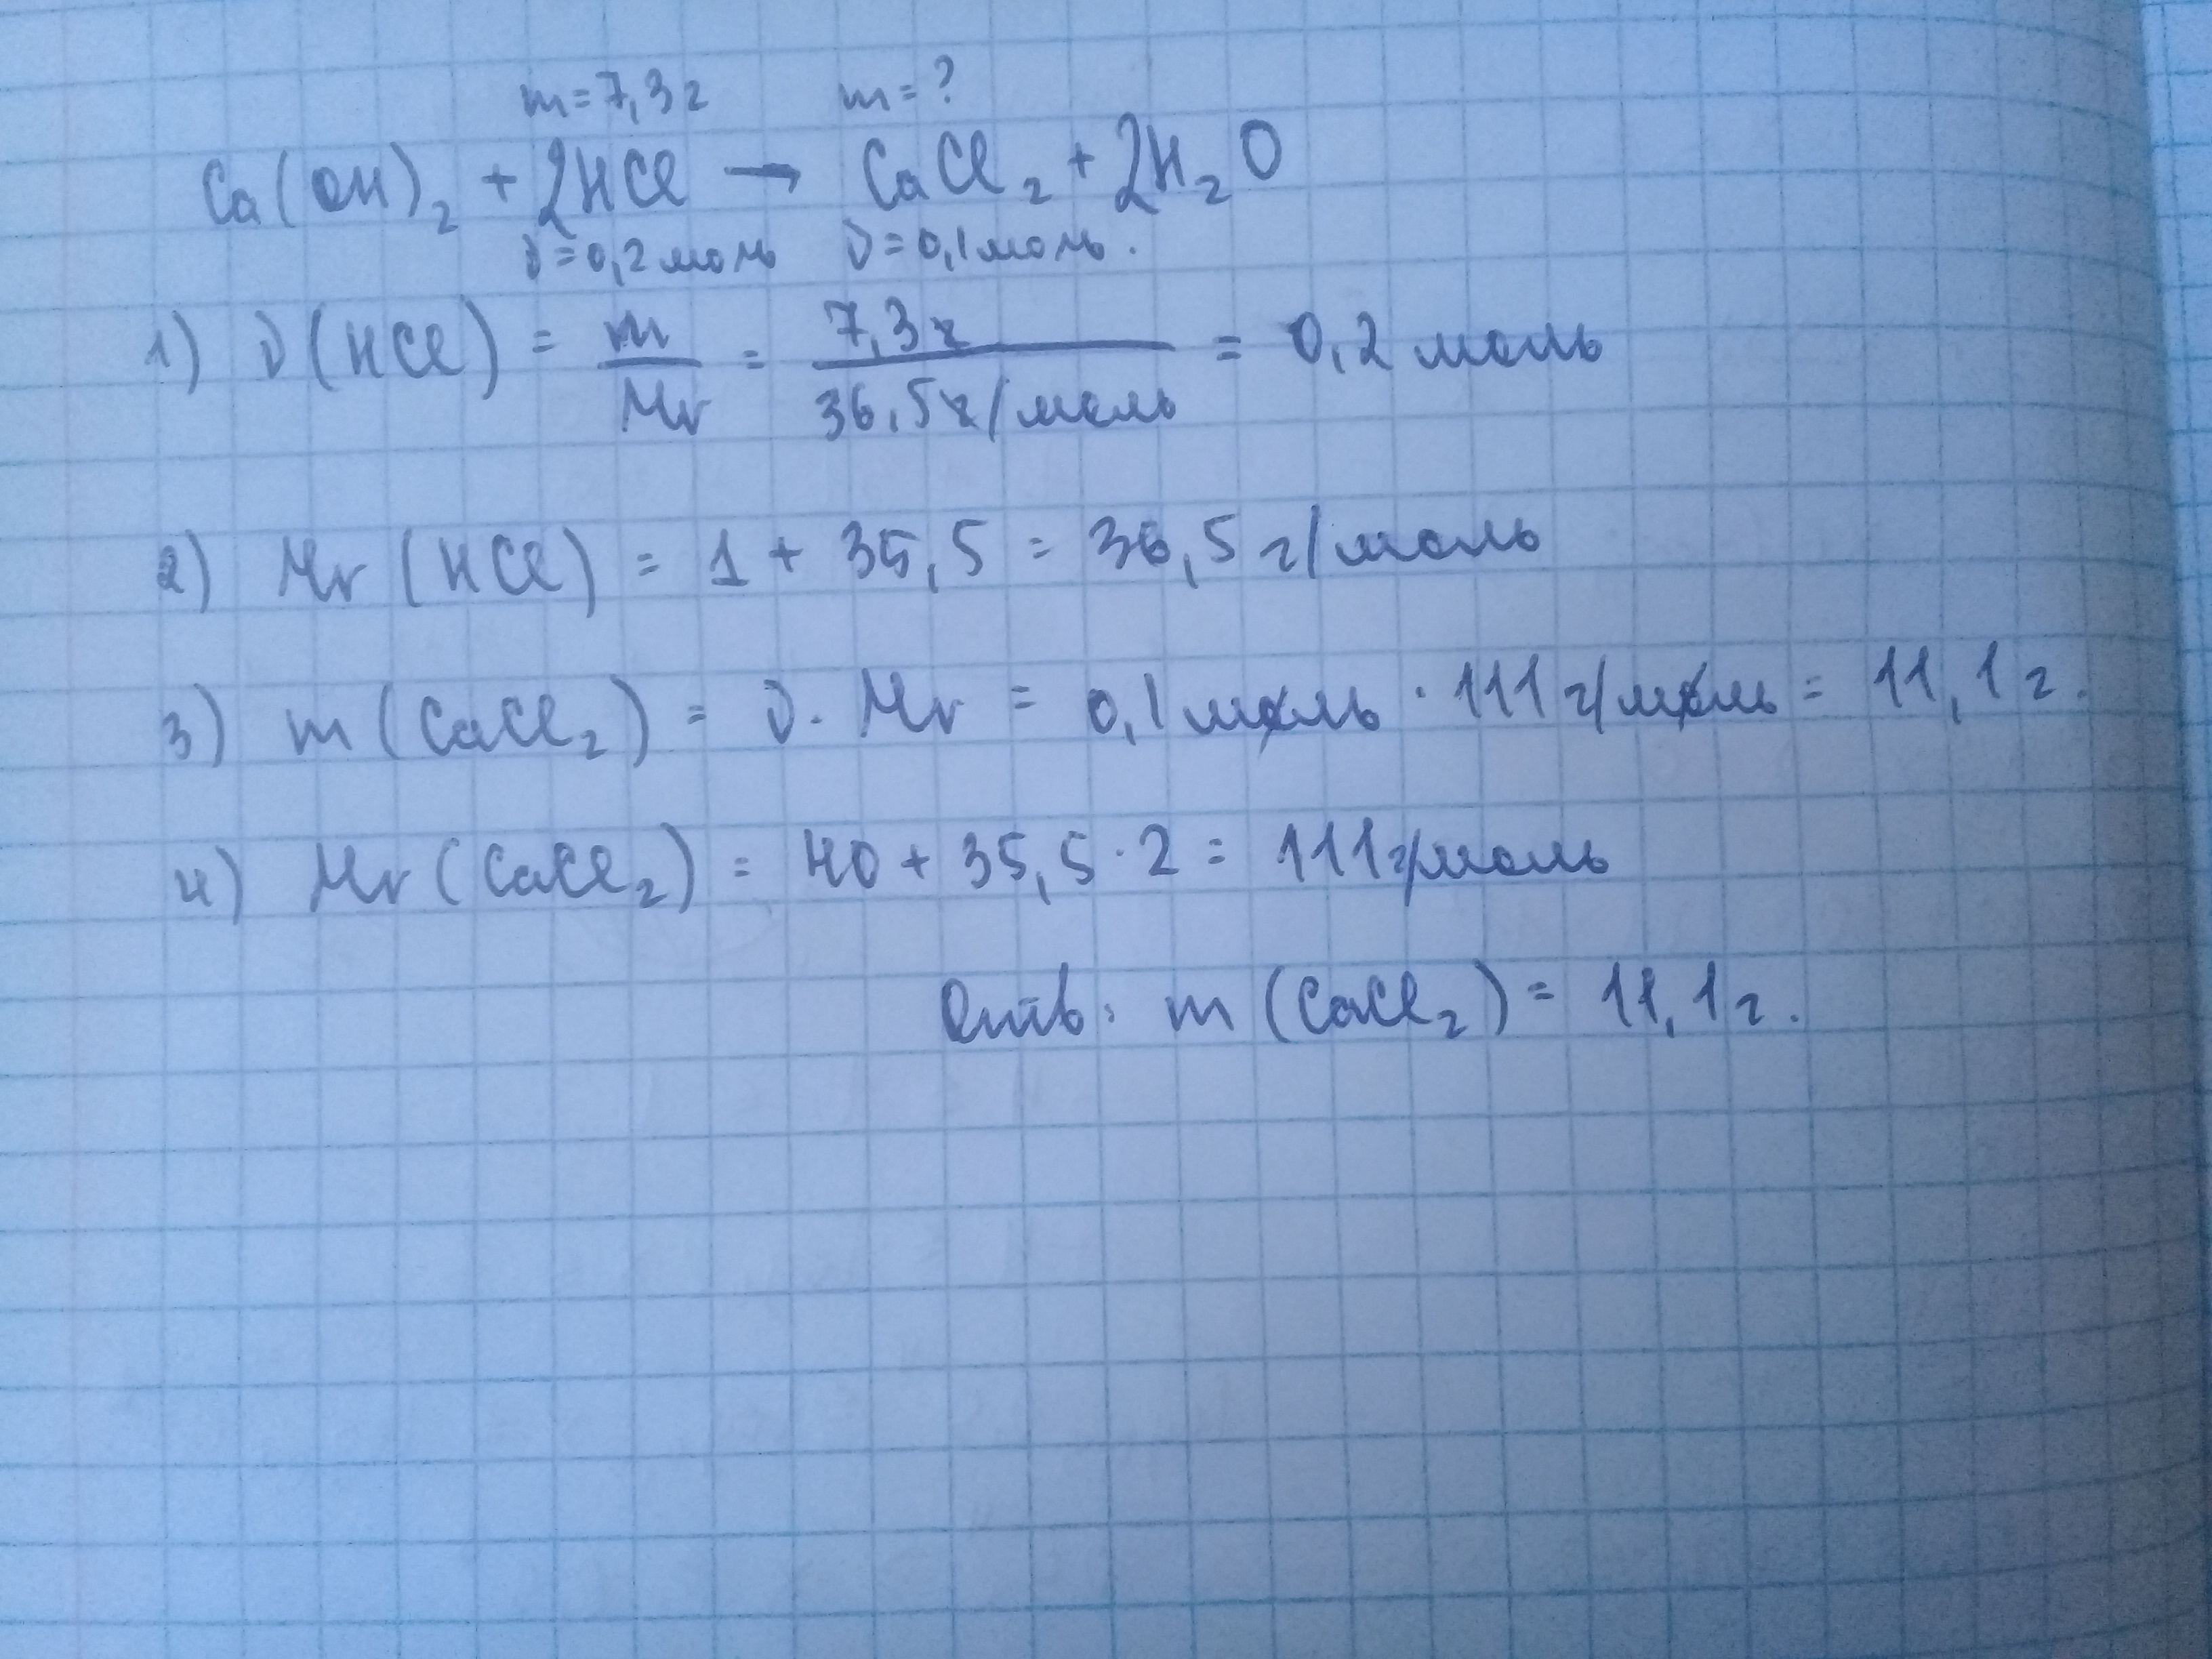 m=7,3г m=?
Ca(OH)₂ + 2HCl → CaCl₂ + 2H₂O
ν=0,2моль ν=0,1моль.
1) ν(HCl) = m/Mr = 7,3г/36,5г/моль = 0,2 моль
2) Mr(HCl) = 1 + 35,5 = 36,5 г/моль
3) m(CaCl₂) = ν · Mr = 0,1 моль · 111 г/моль = 11,1 г.
4) Mr(CaCl₂) = 40 + 35,5 · 2 = 111г/моль
Отв: m(CaCl₂) = 11,1 г.